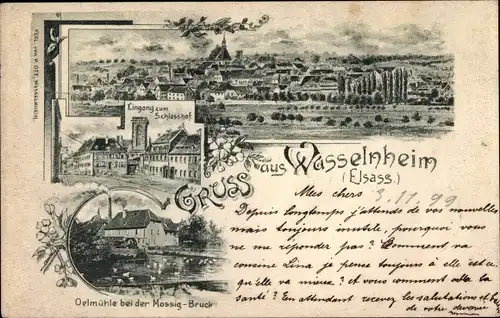 VERL. von P. OTT, WASSELNHEIM.
Eingang zum
Schlosshof
GRUSS aus Wasselnheim
(Elsass.)
Oelmühle bei der Mossig-Bruck
Mes chers 3.11.99
Depuis longtemps j'attends de vos nouvelles
mais toujours inutile, pourquoi vous
ne me répondez pas? Comment va
cousine Lina je pense toujours à elle est-ce
qu'elle va mieux? et vous comment allez la
santé? En attendant recevez les salutations et
de votre devouée